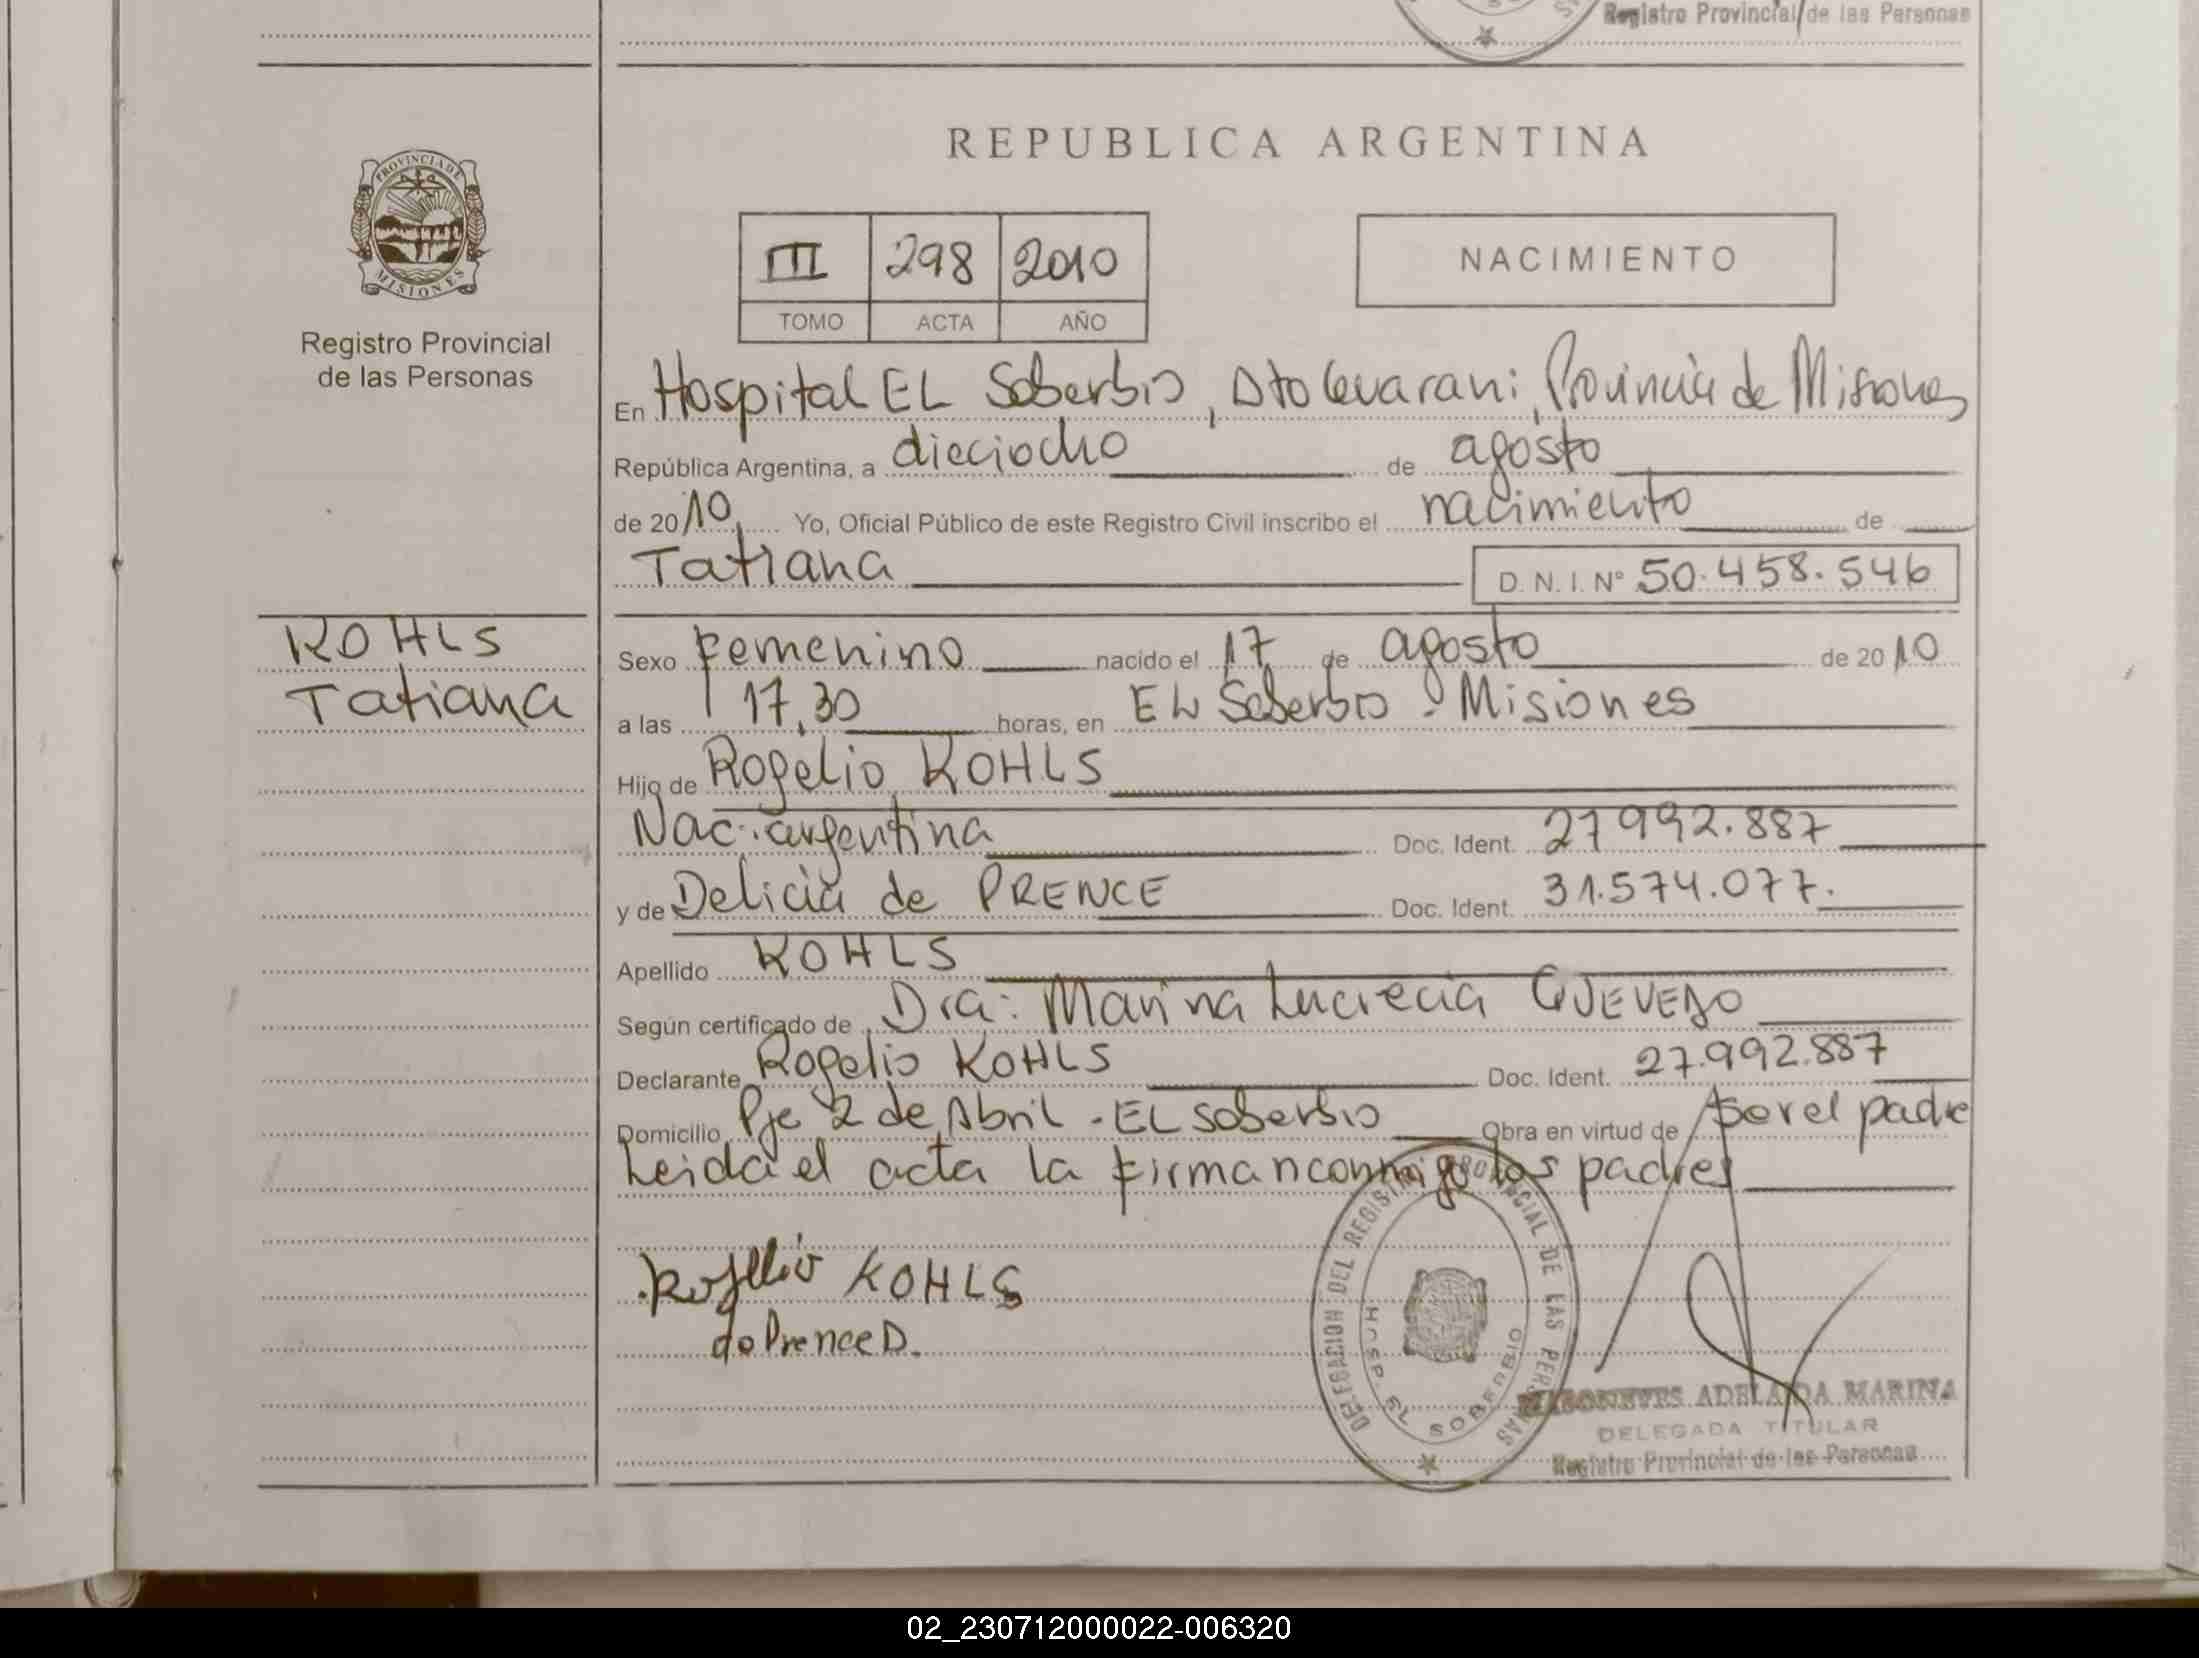 Registro Provincial de las Personas
REPUBLICA ARGENTINA
PROVINCIA DE
MISIONES
Registro Provincial
de las Personas
III 298 2010
TOMO ACTA AÑO
NACIMIENTO
En Hospital EL Soberbio, Dto Guarani, Provincia de Misiones
República Argentina, a dieciocho de agosto
de 2010, Yo, Oficial Público de este Registro Civil inscribo el nacimiento de
Tatiana D. N. I. Nº 50.458.546
KOHLS
Tatiana
Sexo Femenino nacido el 17 de agosto de 2010
a las 17,30 horas, en EL Soberbio - Misiones
Hijo de Rogelio KOHLS
Nac. argentina Doc. Ident. 27992.887
y de Delicia de PRENCE Doc. Ident. 31.574.077.
Apellido KOHLS
Según certificado de Dra: Marina Lucrecia QUEVEDO
Declarante Rogelio KOHLS Doc. Ident. 27.992.887
Domicilio Pje 2 de Abril - EL Soberbio Obra en virtud de ser el padre
Leida el acta la firman conmigo los padres
Rogelio KOHLS
de Prence D.
DELEGACION DEL REGISTRO PROVINCIAL DE LAS PERSONAS
HOSP. EL SOBERBIO
ADELAIDA MARINA
DELEGADA TITULAR
Registro Provincial de las Personas
02_230712000022-006320